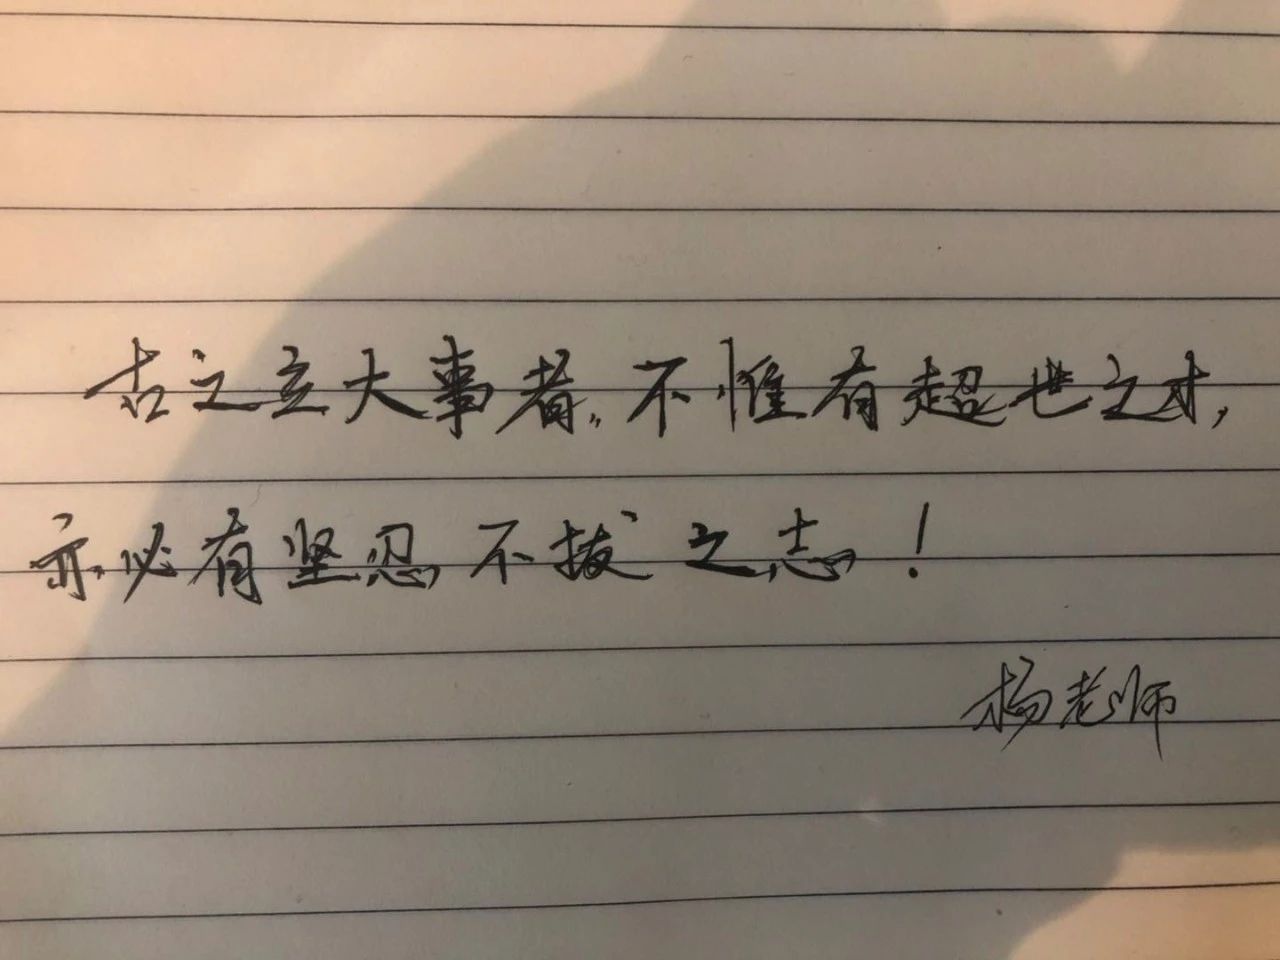 古之立大事者,不惟有超世之才,
亦必有坚忍不拔之志!
杨老师